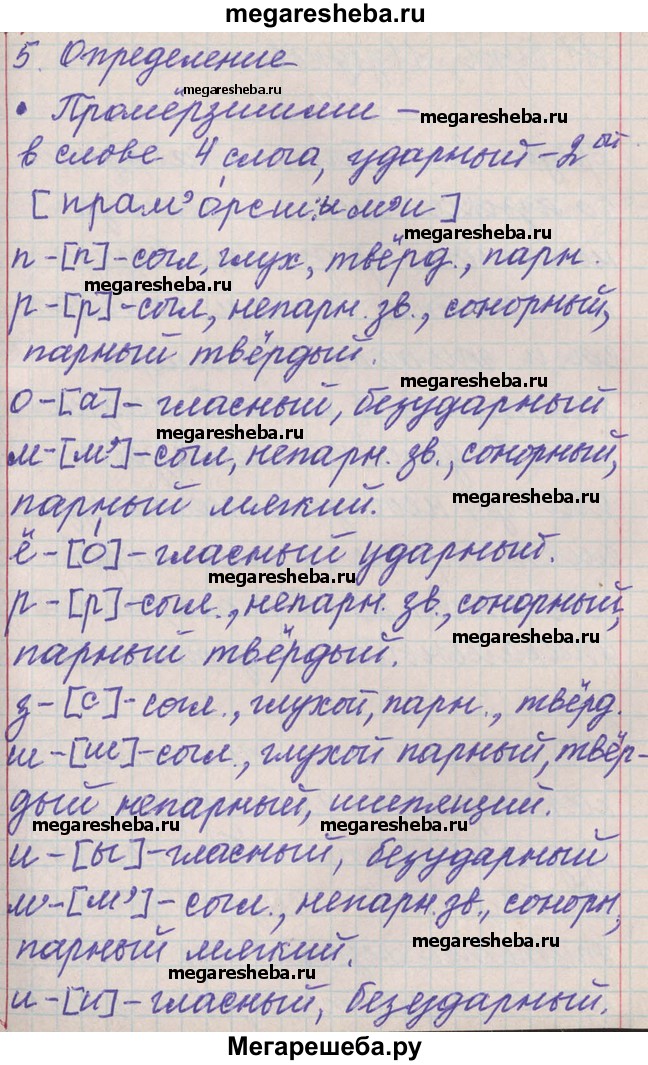 megaresheba.ru
5. Определение
megaresheba.ru
• Промёрзшими –
megaresheba.ru
в слове 4 слога, ударный – 2ой
[прам'о́рсшым'и]
megaresheba.ru
п – [п] – согл, глух, твёрд., парн.
megaresheba.ru
р – [р] – согл, непарн. зв., сонорный,
парный твёрдый.
megaresheba.ru
о – [а] – гласный, безударный
megaresheba.ru
м – [м'] – согл, непарн. зв., сонорный,
megaresheba.ru
парный мягкий.
ё – [о́] – гласный ударный.
megaresheba.ru
р – [р] – согл., непарн. зв., сонорный,
megaresheba.ru
парный твёрдый.
з – [с] – согл., глухой, парн., твёрд.
ш – [ш] – согл., глухой парный, твёр-
дый непарный, шипящий.
megaresheba.ru megaresheba.ru
и – [ы] – гласный, безударный
м – [м'] – согл., непарн. зв., сонорн,
megaresheba.ru
парный мягкий.
megaresheba.ru
и – [и] – гласный, безударный.
Мегарешеба.ру